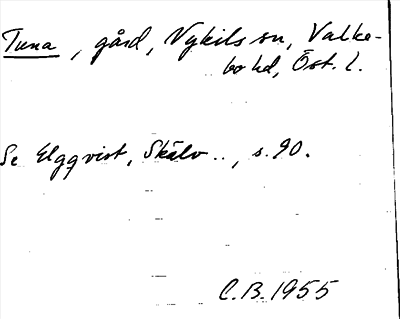 Tuna, gård, Vykils sn, Valke-
bo hd, Öst. l.
Se Elgqvist, Skälv.., s. 90.
C.B. 1955